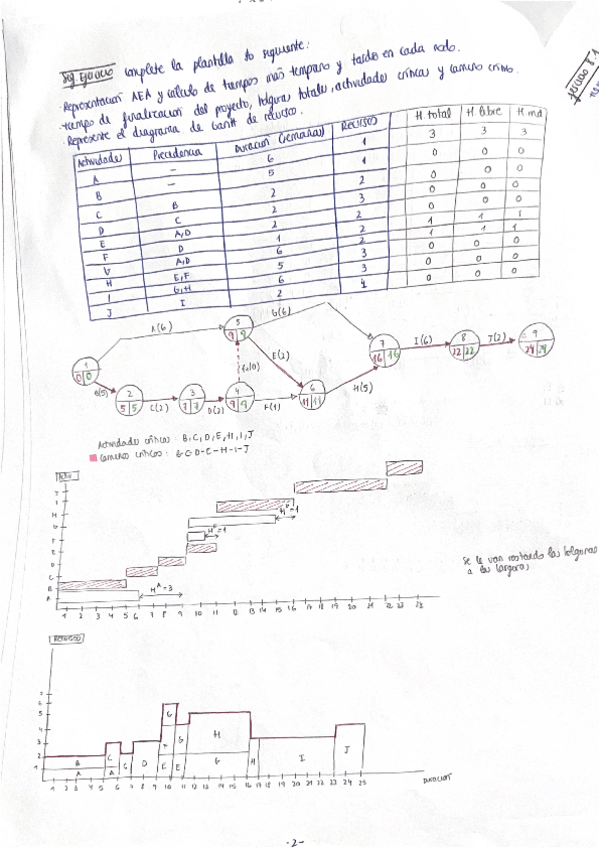 Ejercicio complete la plantilla lo siguiente:
- Representación AEA y cálculo de tiempos más temprano y tardío en cada nodo.
- tiempo de finalización del proyecto, holgura totales, actividades críticas y camino crítico.
- Represente el diagrama de Gantt de recursos.
Actividades Precedencia Duración (semanas) Recursos H total H libre H ind
A - 6 1 3 3 3
B - 5 1 0 0 0
C B 2 2 0 0 0
D C 2 3 0 0 0
E A,D 2 2 0 0 0
F D 1 2 1 1 1
G A,D 6 2 1 1 1
H E,F 5 3 0 0 0
I G,H 6 3 0 0 0
J I 2 4 0 0 0
A(6) G(6)
5
9 9
1
0 0
B(5)
2
5 5
C(2)
3
7 7
D(2)
4
9 9
f1(0)
E(2)
F(1)
6
11 11
H(5)
7
16 16
I(6)
8
22 22
J(2)
9
24 24
Actividades críticas: B, C, D, E, H, I, J
Caminos críticos: B-C-D-E-H-I-J
J
I
H
G
F
E
D
C
B
A
H=1
H=1
H=3
1 2 3 4 5 6 7 8 9 10 11 12 13 14 15 16 17 18 19 20 21 22 23
Se le van restando las holguras
a las largas
RECURSOS
7
6
5
4
3
2
1
B A C A C D G F E G E H G H I J
1 2 3 4 5 6 7 8 9 10 11 12 13 14 15 16 17 18 19 20 21 22 23 24 25
DURACIÓN
-2-